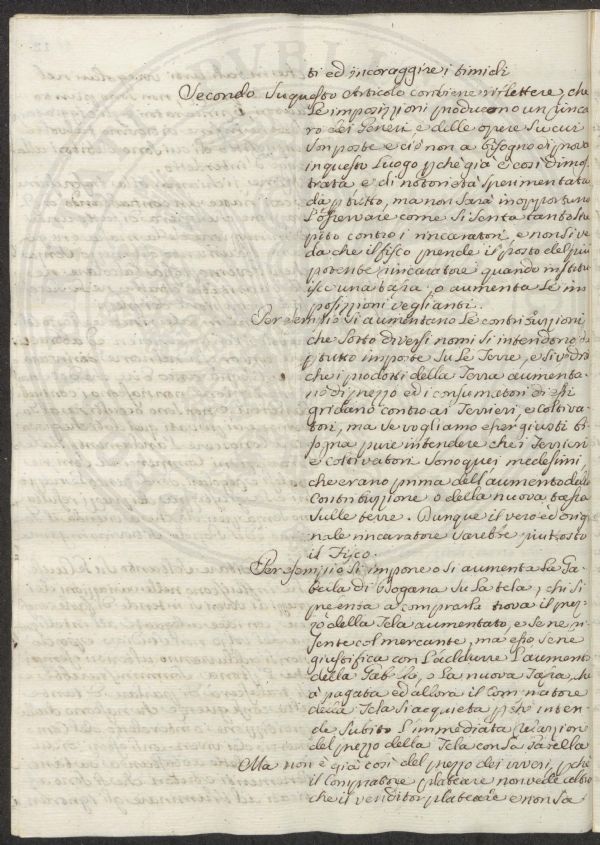 ti ed incoraggire i timidi
Secondo Su questo Articolo conviene riflettere, che
Le imposizioni producono un rinca
ro dei Generi e delle opere Su cui
Son poste e ciò non a bisogno di prova
in questo Luogo pchè già è così dimos
trata e di notorietà sperimentata
da ptutto, ma non Sarà inopportuno
L'osservare come si Senta tanto stre
pito contro i rincaratori, e non si ve
da che il fisco prende il posto del più
potente rincaratore quando institu
isce una tassa, o aumenta Le im
posizioni veglianti.
Per esempio Si aumentano Le contribuzioni
che Sotto diversi nomi Si intendono da
ptutto imposte Su Le Terre, e Si vedrà
che i prodotti della Terra aumenta
no di prezzo ed i consumatori di essi
gridano contro ai Terrieri, e coltiva
tori, ma Se vogliamo esser giusti bi
sogna pure intendere che i Terrieri
e coltivatori Sono quei medesimi,
che erano prima dell'aumento della
Contribuzione o della nuova tassa
Sulle terre. Dunque il vero ed origi
nale rincaratore Sarebbe piuttosto
il Fisco.
Per esempio Si impone o Si aumenta La Ga
bella di Dogana Su La tela, chi Si
presenta a comprarla trova il prez
zo della Tela aumentato, e Se ne ri
Sente col mercante, ma esso Se ne
giustifica con L'addurre L'aumento
della Gabella, o La nuova Tassa, che
à pagata ed allora il Compratore
della Tela Si acquieta pchè inten
de Subito L'immediata relazione
del prezzo della Tela con La Gabella
Ma non è già così del prezzo dei viveri, pchè
il Compratore plateare non vede altro
che il venditor plateare e non Sa